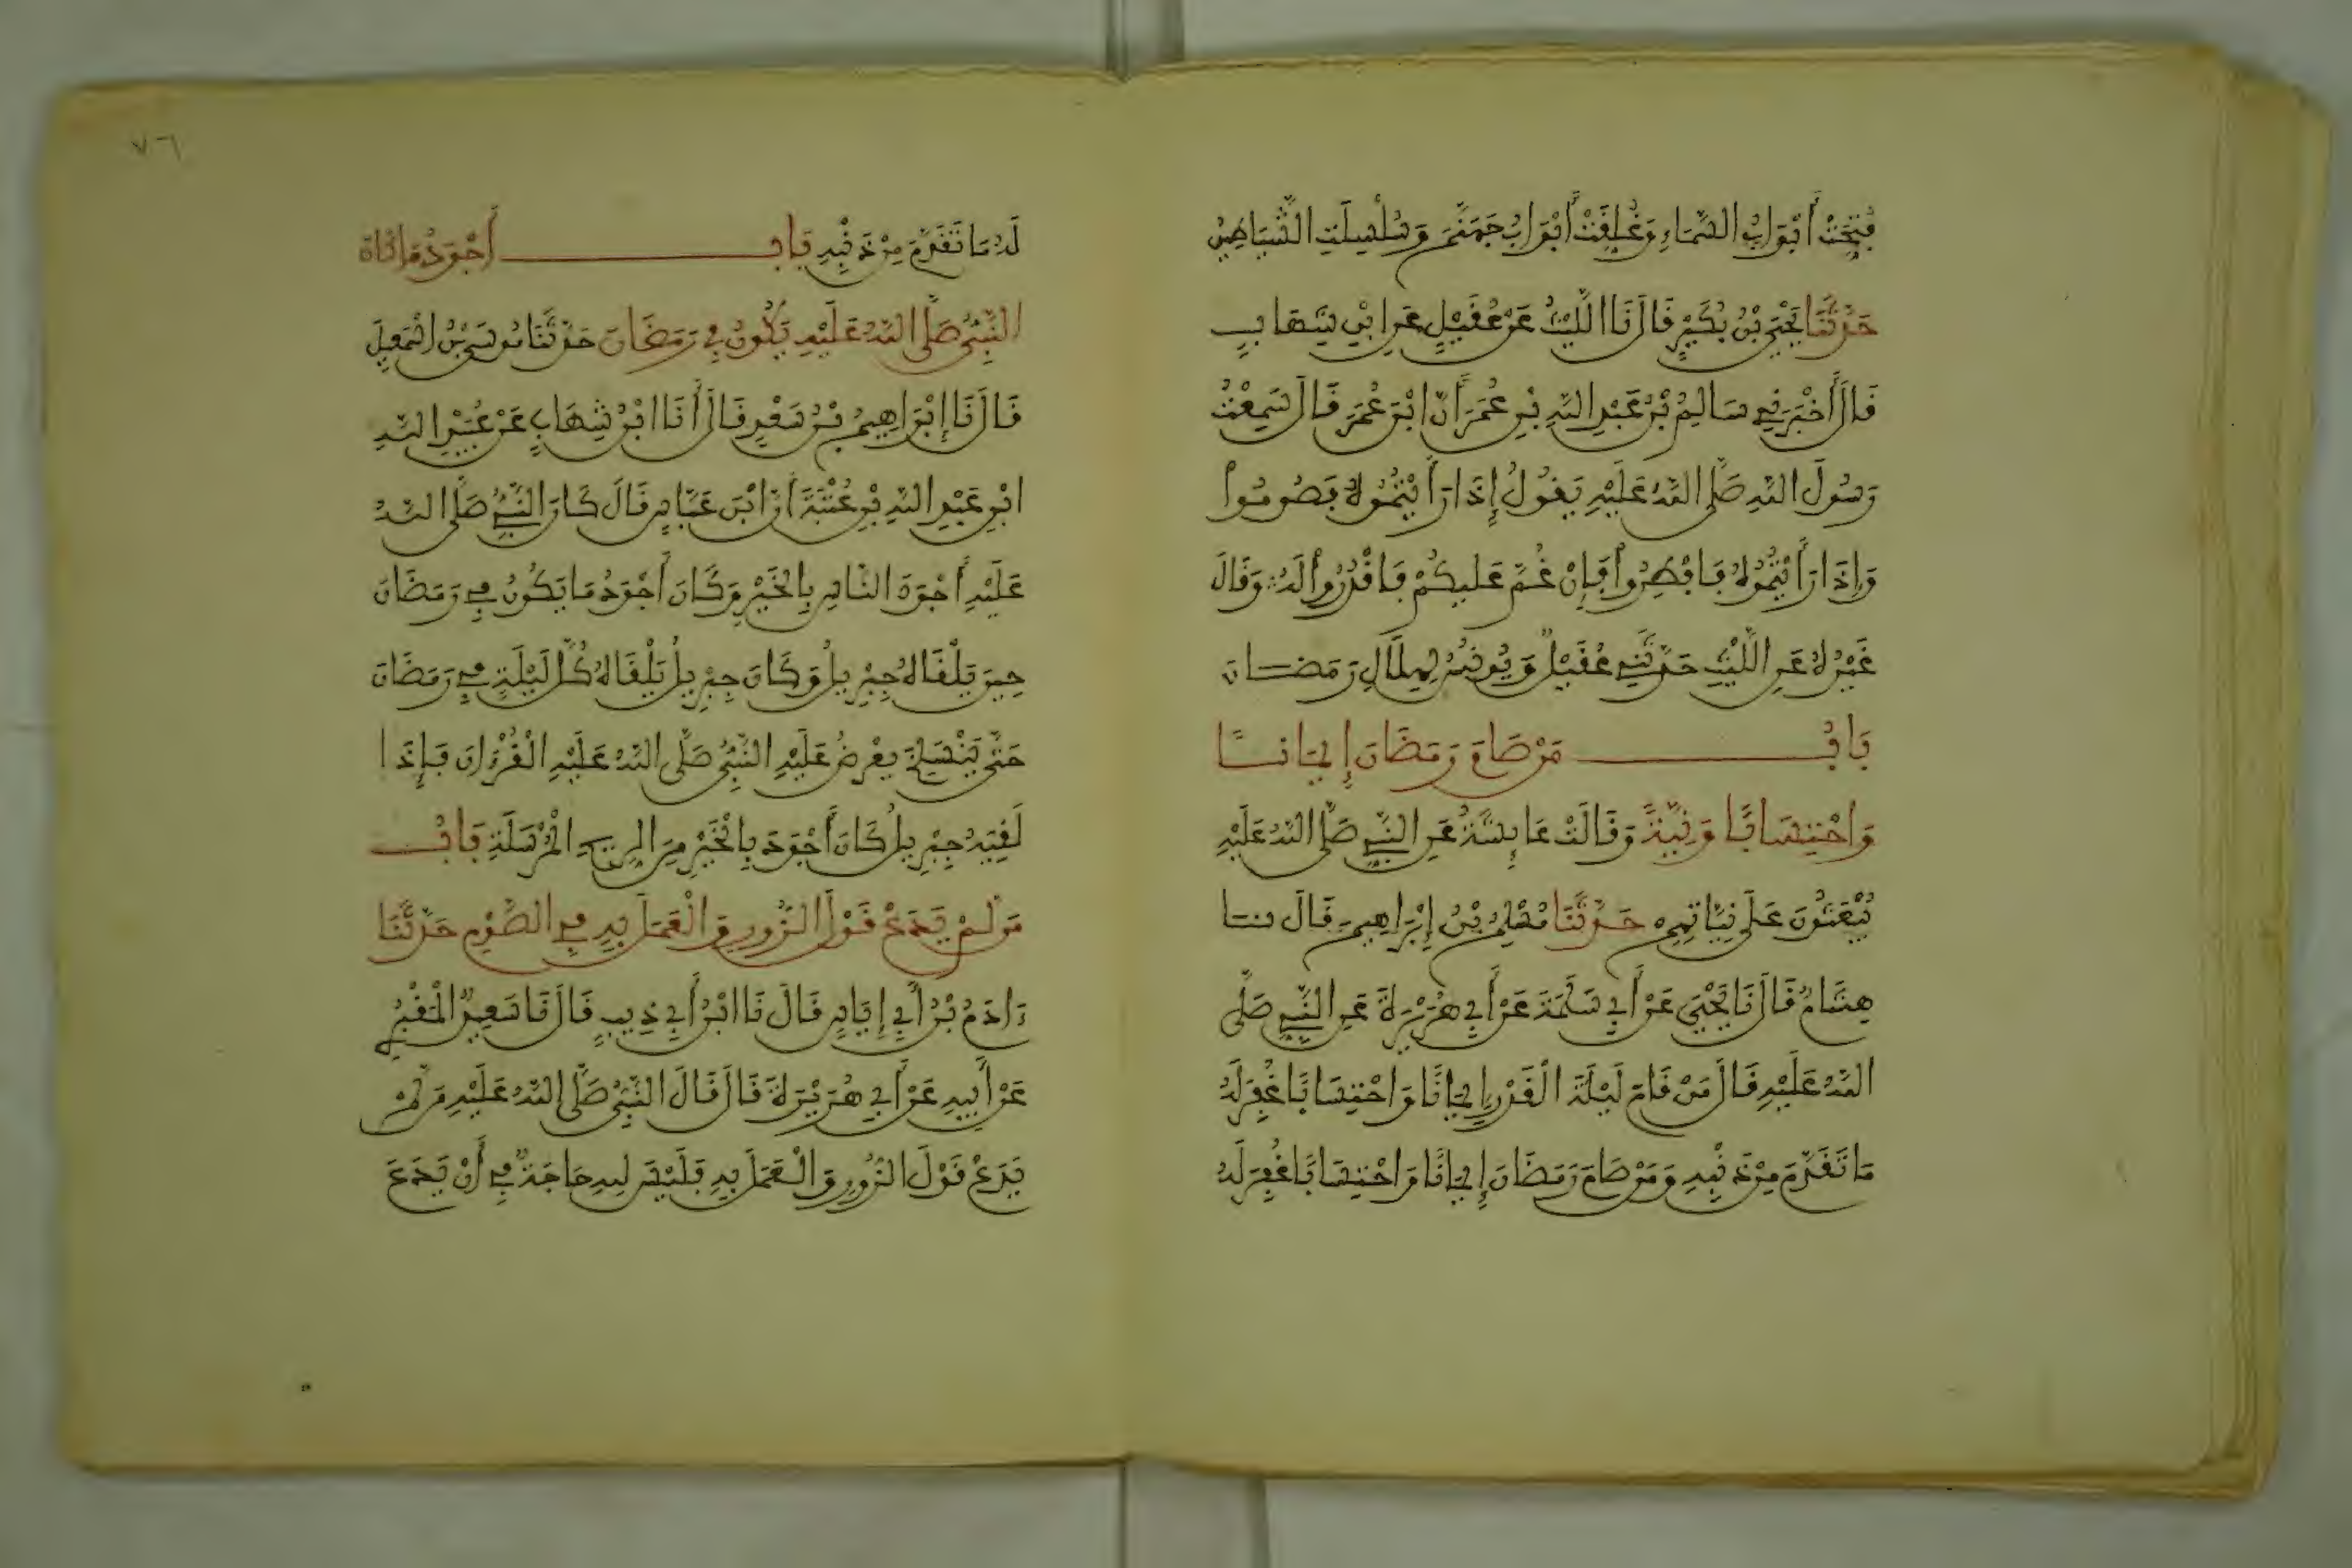 فُتِحَتْ أَبْوَابُ السَّمَاءِ وَغُلِقَتْ أَبْوَابُ جَهَنَّمَ وَسُلْسِلَتِ الشَّيَاطِينُ
حَدَّثَنَا يَحْيَى بْنُ بُكَيْرٍ قَالَ نَا اللَّيْثُ عَنْ عُقَيْلٍ عَنِ ابْنِ شِهَابٍ
قَالَ أَخْبَرَنِي سَالِمُ بْنُ عَبْدِ اللَّهِ بْنِ عُمَرَ أَنَّ ابْنَ عُمَرَ قَالَ سَمِعْتُ
رَسُولَ اللَّهِ صَلَّى اللَّهُ عَلَيْهِ يَقُولُ إِذَا رَأَيْتُمُوهُ فَصُومُوا
وَإِذَا رَأَيْتُمُوهُ فَافْطِرُوا فَإِنْ غُمَّ عَلَيكُمْ فَاقْدُرُوا لَهُ وَقَالَ
غَيْرُهُ عَنِ اللَّيْثِ حَدَّثَنِي عُقَيْلٌ وَيُونُسُ لِهِلَالِ رَمَضَانَ
بَابُ مَنْ صَامَ رَمَضَانَ إِيمَانًا
وَاحْتِسَابًا وَنِيَّةً وَقَالَتْ عَايِشَةُ عَنِ النَّبِيِّ صَلَّى اللَّهُ عَلَيْهِ
يُبْعَثُونَ عَلَى نِيَّاتِهِمْ حَدَّثَنَا مُسْلِمُ بْنُ إِبْرَاهِيمَ قَالَ نَا
هِشَامٌ قَالَ نَا يَحْيَى عَنْ أَبِي سَلَمَةَ عَنْ أَبِي هُرَيْرَةَ عَنِ النَّبِيِّ صَلَّى
اللَّهُ عَلَيْهِ قَالَ مَنْ قَامَ لَيْلَةَ الْقَدْرِ إِيمَانًا وَاحْتِسَابًا غُفِرَ لَهُ
مَا تَقَدَّمَ مِنْ ذَنْبِهِ وَمَنْ صَامَ رَمَضَانَ إِيمَانًا وَاحْتِسَابًا غُفِرَ لَهُ
٧٦
لَهُ مَا تَقَدَّمَ مِنْ ذَنْبِهِ بَابُ أَجْوَدُ مَا كَانَ
النَّبِيُّ صَلَّى اللَّهُ عَلَيْهِ يَكُونُ فِي رَمَضَانَ حَدَّثَنَا مُوسَى بْنُ اسْمَعِيلَ
قَالَ نَا إِبْرَاهِيمُ بْنُ سَعْدٍ قَالَ أَنَا ابْنُ شِهَابٍ عَنْ عُبَيْدِ اللَّهِ
ابْنِ عَبْدِ اللَّهِ بْنِ عُتْبَةَ أَنَّ ابْنَ عَبَّاسٍ قَالَ كَانَ النَّبِيُّ صَلَّى اللَّهُ
عَلَيْهِ أَجْوَدَ النَّاسِ بِالْخَيْرِ وَكَانَ أَجْوَدُ مَا يَكُونُ فِي رَمَضَانَ
حِينَ يَلْقَاهُ جِبْرِيلُ وَكَانَ جِبْرِيلُ يَلْقَاهُ كُلَّ لَيْلَةٍ فِي رَمَضَانَ
حَتَّى يَنْسَلِخَ يَعْرِضُ عَلَيْهِ النَّبِيُّ صَلَّى اللَّهُ عَلَيْهِ الْقُرْءَانَ فَإِذَا
لَقِيَهُ جِبْرِيلُ كَانَ أَجْوَدَ بِالْخَيْرِ مِنَ الرِيحِ الْمُرْسَلَةِ بَابُ
مَنْ لَمْ يَدَعْ قَوْلَ الزُّورِ وَالْعَمَلَ بِهِ فِي الصَّوْمِ حَدَّثَنَا
ءَادَمُ بْنُ أَبِي إِيَاسٍ قَالَ نَا ابْنُ أَبِي ذِيبٍ قَالَ نَا سَعِيدٌ الْمَقْبُرِي
عَنْ أَبِيهِ عَنْ أَبِي هُرَيْرَةَ قَالَ قَالَ النَّبِيُّ صَلَّى اللَّهُ عَلَيْهِ مَنْ لَمْ
يَدَعْ قَوْلَ الزُّورِ وَالْعَمَلَ بِهِ فَلَيْسَ لِلهِ حَاجَةٌ فِي أَنْ يَدَعَ